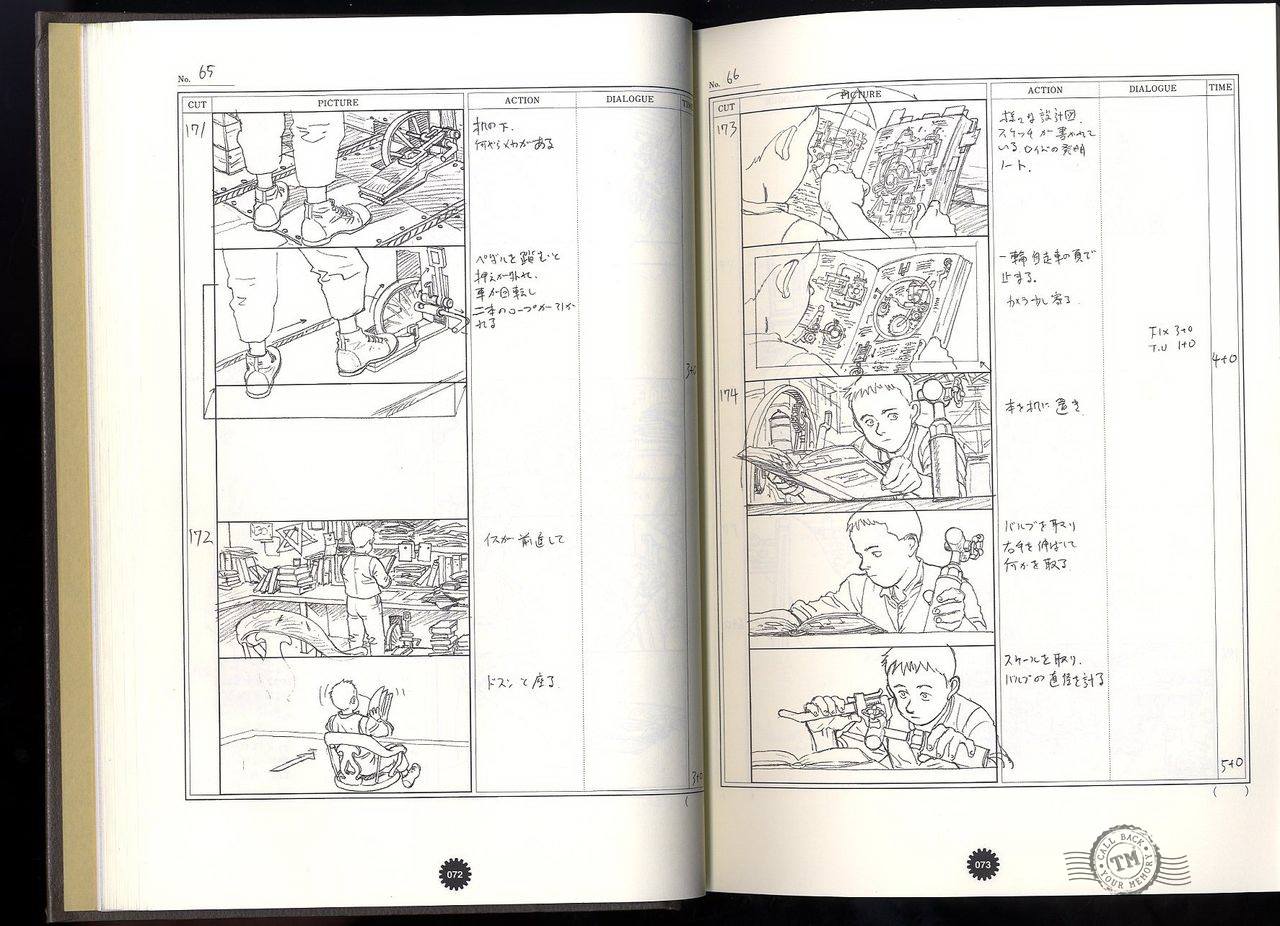 No. 65
CUT
PICTURE
ACTION
DIALOGUE
171
机の下.
何やらメカがある
ペダルを踏むと
押えが外れ、
車が回転し
二本のロープが引か
れる
3+0
172
イスが前進して
ドスンと座る.
3+0
(
072
No. 66
CUT
PICTURE
ACTION
DIALOGUE
TIME
173
様々な設計図.
スケッチが書かれて
いるロイドの発明
ノート.
一輪自走車の頁で
止まる.
カメラ少し寄る.
FIX 3+0
T.U 1+0
4+0
174
本を机に置き
バルブを取り
右手を伸ばして
何かを取る
スケールを取り.
バルブの直径を計る
5+0
( )
073
CALL BACK
TM
YOUR MEMORY